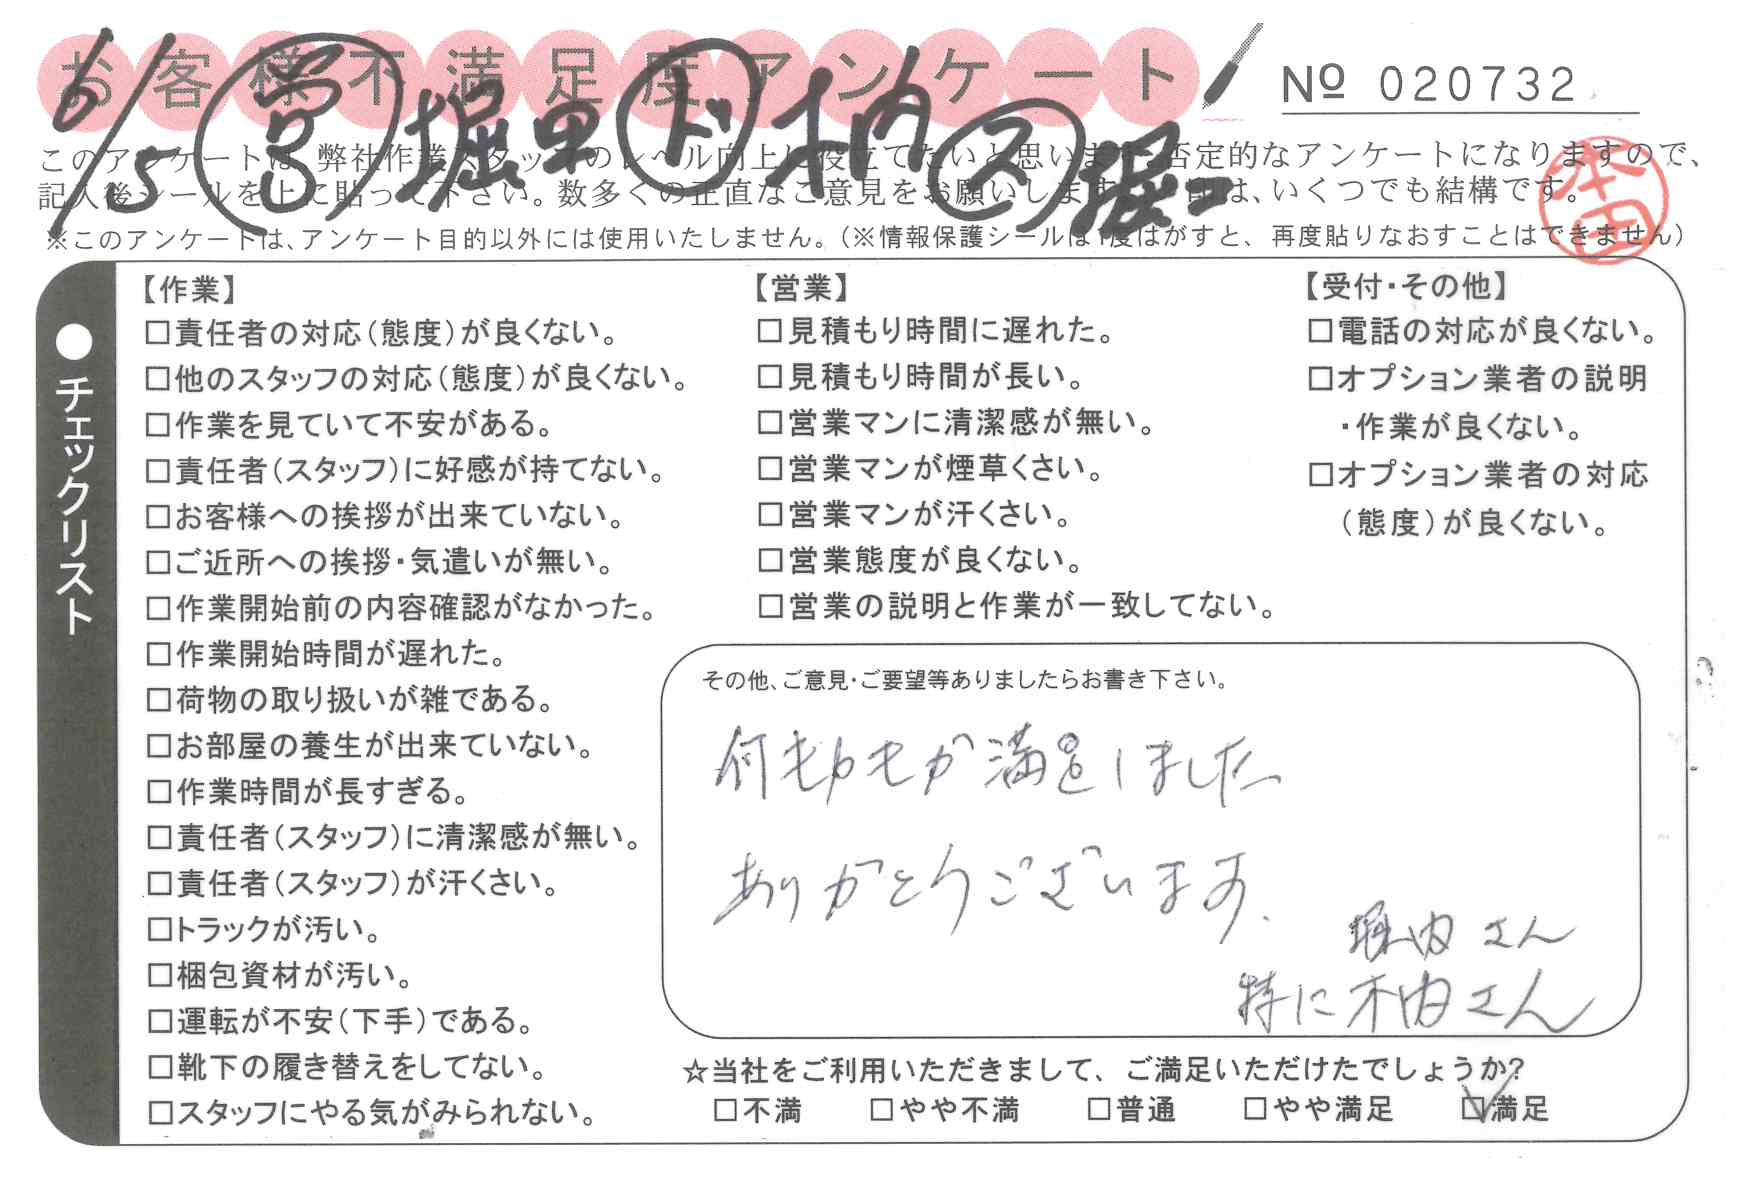 お客様不満足度アンケート
№ 020732
6/5 営 堀
このアンケートは、弊社作業スタッフのレベル向上に役立てたいと思います。否定的なアンケートになりますので、
記入後シールを上に貼って下さい。数多くの正直なご意見をお願いします。 印は、いくつでも結構です。
※このアンケートは、アンケート目的以外には使用いたしません。(※情報保護シールは1度はがすと、再度貼りなおすことはできません)
本田
●チェックリスト
【作業】
□責任者の対応(態度)が良くない。
□他のスタッフの対応(態度)が良くない。
□作業を見ていて不安がある。
□責任者(スタッフ)に好感が持てない。
□お客様への挨拶が出来ていない。
□ご近所への挨拶・気遣いが無い。
□作業開始前の内容確認がなかった。
□作業開始時間が遅れた。
□荷物の取り扱いが雑である。
□お部屋の養生が出来ていない。
□作業時間が長すぎる。
□責任者(スタッフ)に清潔感が無い。
□責任者(スタッフ)が汗くさい。
□トラックが汚い。
□梱包資材が汚い。
□運転が不安(下手)である。
□靴下の履き替えをしてない。
□スタッフにやる気がみられない。
【営業】
□見積もり時間に遅れた。
□見積もり時間が長い。
□営業マンに清潔感が無い。
□営業マンが煙草くさい。
□営業マンが汗くさい。
□営業態度が良くない。
□営業の説明と作業が一致してない。
【受付・その他】
□電話の対応が良くない。
□オプション業者の説明
・作業が良くない。
□オプション業者の対応
(態度)が良くない。
その他、ご意見・ご要望等ありましたらお書き下さい。
何もかもが満足しました
ありがとうございます.
堀内さん
特に木内さん
☆当社をご利用いただきまして、ご満足いただけたでしょうか?
□不満 □やや不満 □普通 □やや満足 ☑満足